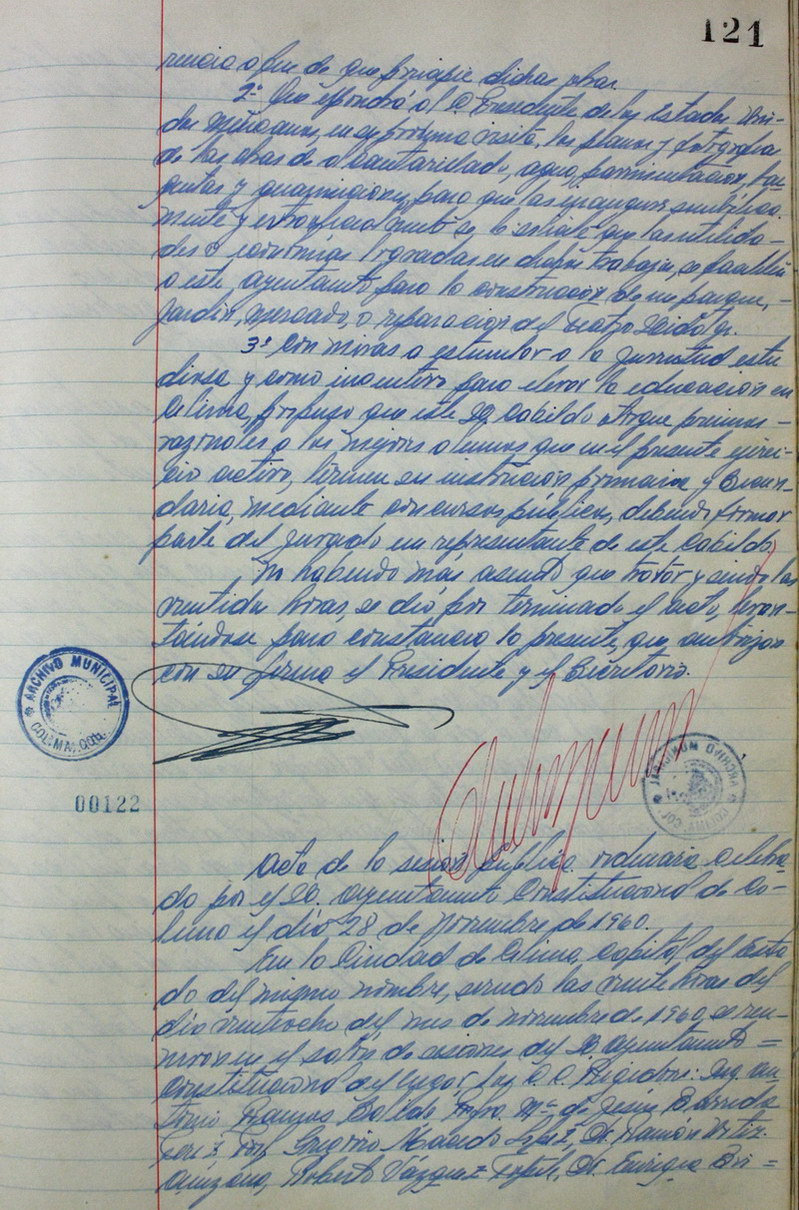 121
rencia a fin de que principie dichas obras.
2º Que expondrá al C. Presidente de los Estados Uni-
dos Mexicanos, en su próxima visita, los planos y fotografías
de las obras de alcantarillado, agua, pavimentación, ban-
quetas y guarniciones, para que las inaugure simbólica-
mente y extraoficialmente se le señale que las utilida-
des o economías logradas en dichos trabajos, se faculte
a este ayuntamiento para la construcción de un parque,
jardín, mercado, o reparación del Teatro Hidalgo.
3º Con miras a estimular a la juventud estu
diosa y como incentivo para elevar la educación en
Colima, propuso que este H. Cabildo otorgue premios
razonables a los mejores alumnos que en el presente ejerci-
cio activo, terminen su instrucción primaria y Secun-
daria, mediante concursos públicos, debiendo formar
parte del jurado un representante de este Cabildo.
No habiendo más asunto que tratar y siendo las
veintidos horas, se dió por terminado el acto, levan-
tándose para constancia la presente, que autorizan
con su firma el Presidente y el Secretario.
ARCHIVO MUNICIPAL
COLIMA, COL.
ARCHIVO MUNICIPAL
COLIMA, COL.
00122
Acta de la sesión pública ordinaria celebra-
da por el H. Ayuntamiento Constitucional de Co-
lima el día 28 de Noviembre de 1960.
En la Ciudad de Colima, Capital del Esta
do del mismo nombre, siendo las veinte horas del
día veintiocho del mes de noviembre de 1960, se reu-
nieron en el salón de sesiones del H. Ayuntamiento =
Constitucional del lugar, los C.C. Regidores: Ing. An-
tonio Ramos Salido, Profra. Mª de Jesús Barreda
Pérez, Prof. Gregorio Macedo López, Dr. Ramón Ortiz
Anzano, Roberto Vázquez, Dr. Enrique Bri =